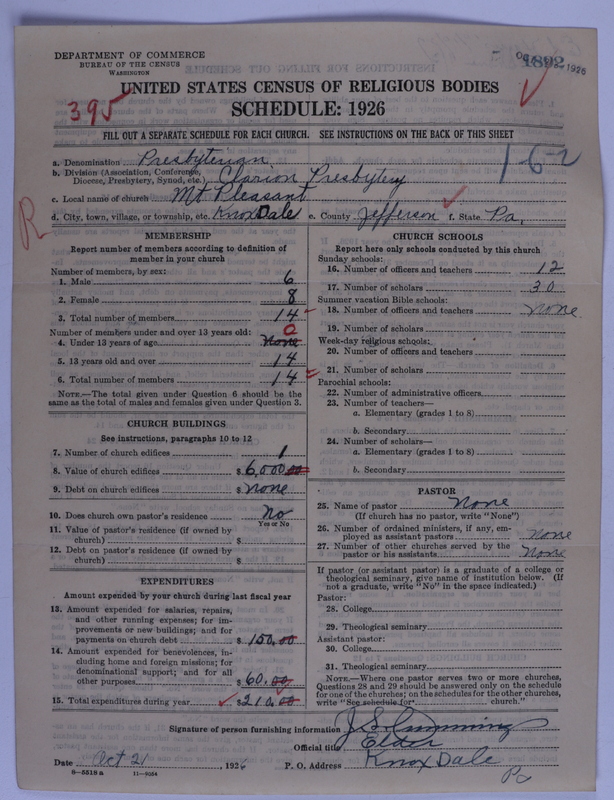 DEPARTMENT OF COMMERCE
BUREAU OF THE CENSUS
WASHINGTON
1892
1926
UNITED STATES CENSUS OF RELIGIOUS BODIES
SCHEDULE: 1926
395
FILL OUT A SEPARATE SCHEDULE FOR EACH CHURCH. SEE INSTRUCTIONS ON THE BACK OF THIS SHEET
162
a. Denomination Presbyterian
b. Division (Association, Conference, Diocese, Presbytery, Synod, etc.) Clarion Presbytery
c. Local name of church Mt Pleasant
d. City, town, village, or township, etc. Knox Dale e. County Jefferson f. State Pa.
R
MEMBERSHIP
Report number of members according to definition of
member in your church
Number of members, by sex:
1. Male 6
2. Female 8
3. Total number of members 14
Number of members under and over 13 years old: 0
4. Under 13 years of age None
5. 13 years old and over 14
6. Total number of members 14
NOTE.—The total given under Question 6 should be
same as the total of males and females given under Question 3.
CHURCH BUILDINGS
See instructions, paragraphs 10 to 12
7. Number of church edifices 1
8. Value of church edifices $ 6,000 00
9. Debt on church edifices $ none
10. Does church own pastor's residence No
Yes or No
11. Value of pastor's residence (if owned by
church) $
12. Debt on pastor's residence (if owned by
church) $
EXPENDITURES
Amount expended by your church during last fiscal year
13. Amount expended for salaries, repairs,
and other running expenses; for im-
provements or new buildings; and for
payments on church debt $ 150.00
14. Amount expended for benevolences, in-
cluding home and foreign missions; for
denominational support; and for all
other purposes $ 60.00
15. Total expenditures during year $ 210.00
CHURCH SCHOOLS
Report here only schools conducted by this church
Sunday schools:
16. Number of officers and teachers 12
17. Number of scholars 30
Summer vacation Bible schools:
18. Number of officers and teachers None
19. Number of scholars
Week-day religious schools:
20. Number of officers and teachers
21. Number of scholars
Parochial schools:
22. Number of administrative officers
23. Number of teachers—
a. Elementary (grades 1 to 8)
b. Secondary
24. Number of scholars—
a. Elementary (grades 1 to 8)
b. Secondary
PASTOR
25. Name of pastor None
(If church has no pastor, write "None")
26. Number of ordained ministers, if any, em-
ployed as assistant pastors None
27. Number of other churches served by the
pastor or his assistants None
If pastor (or assistant pastor) is a graduate of a college or
theological seminary, give name of institution below. (If
not a graduate, write "No" in the space indicated.)
Pastor:
28. College
29. Theological seminary
Assistant pastor:
30. College
31. Theological seminary
NOTE.—Where one pastor serves two or more churches,
Questions 28 and 29 should be answered only on the schedule
for one of the churches; on the schedules for the other churches,
write "See schedule for church."
Signature of person furnishing information J. S. Cumming
Official title Elder
Date Oct 21, 1926 P. O. Address Knox Dale
Pa
8-5518 a 11-9054